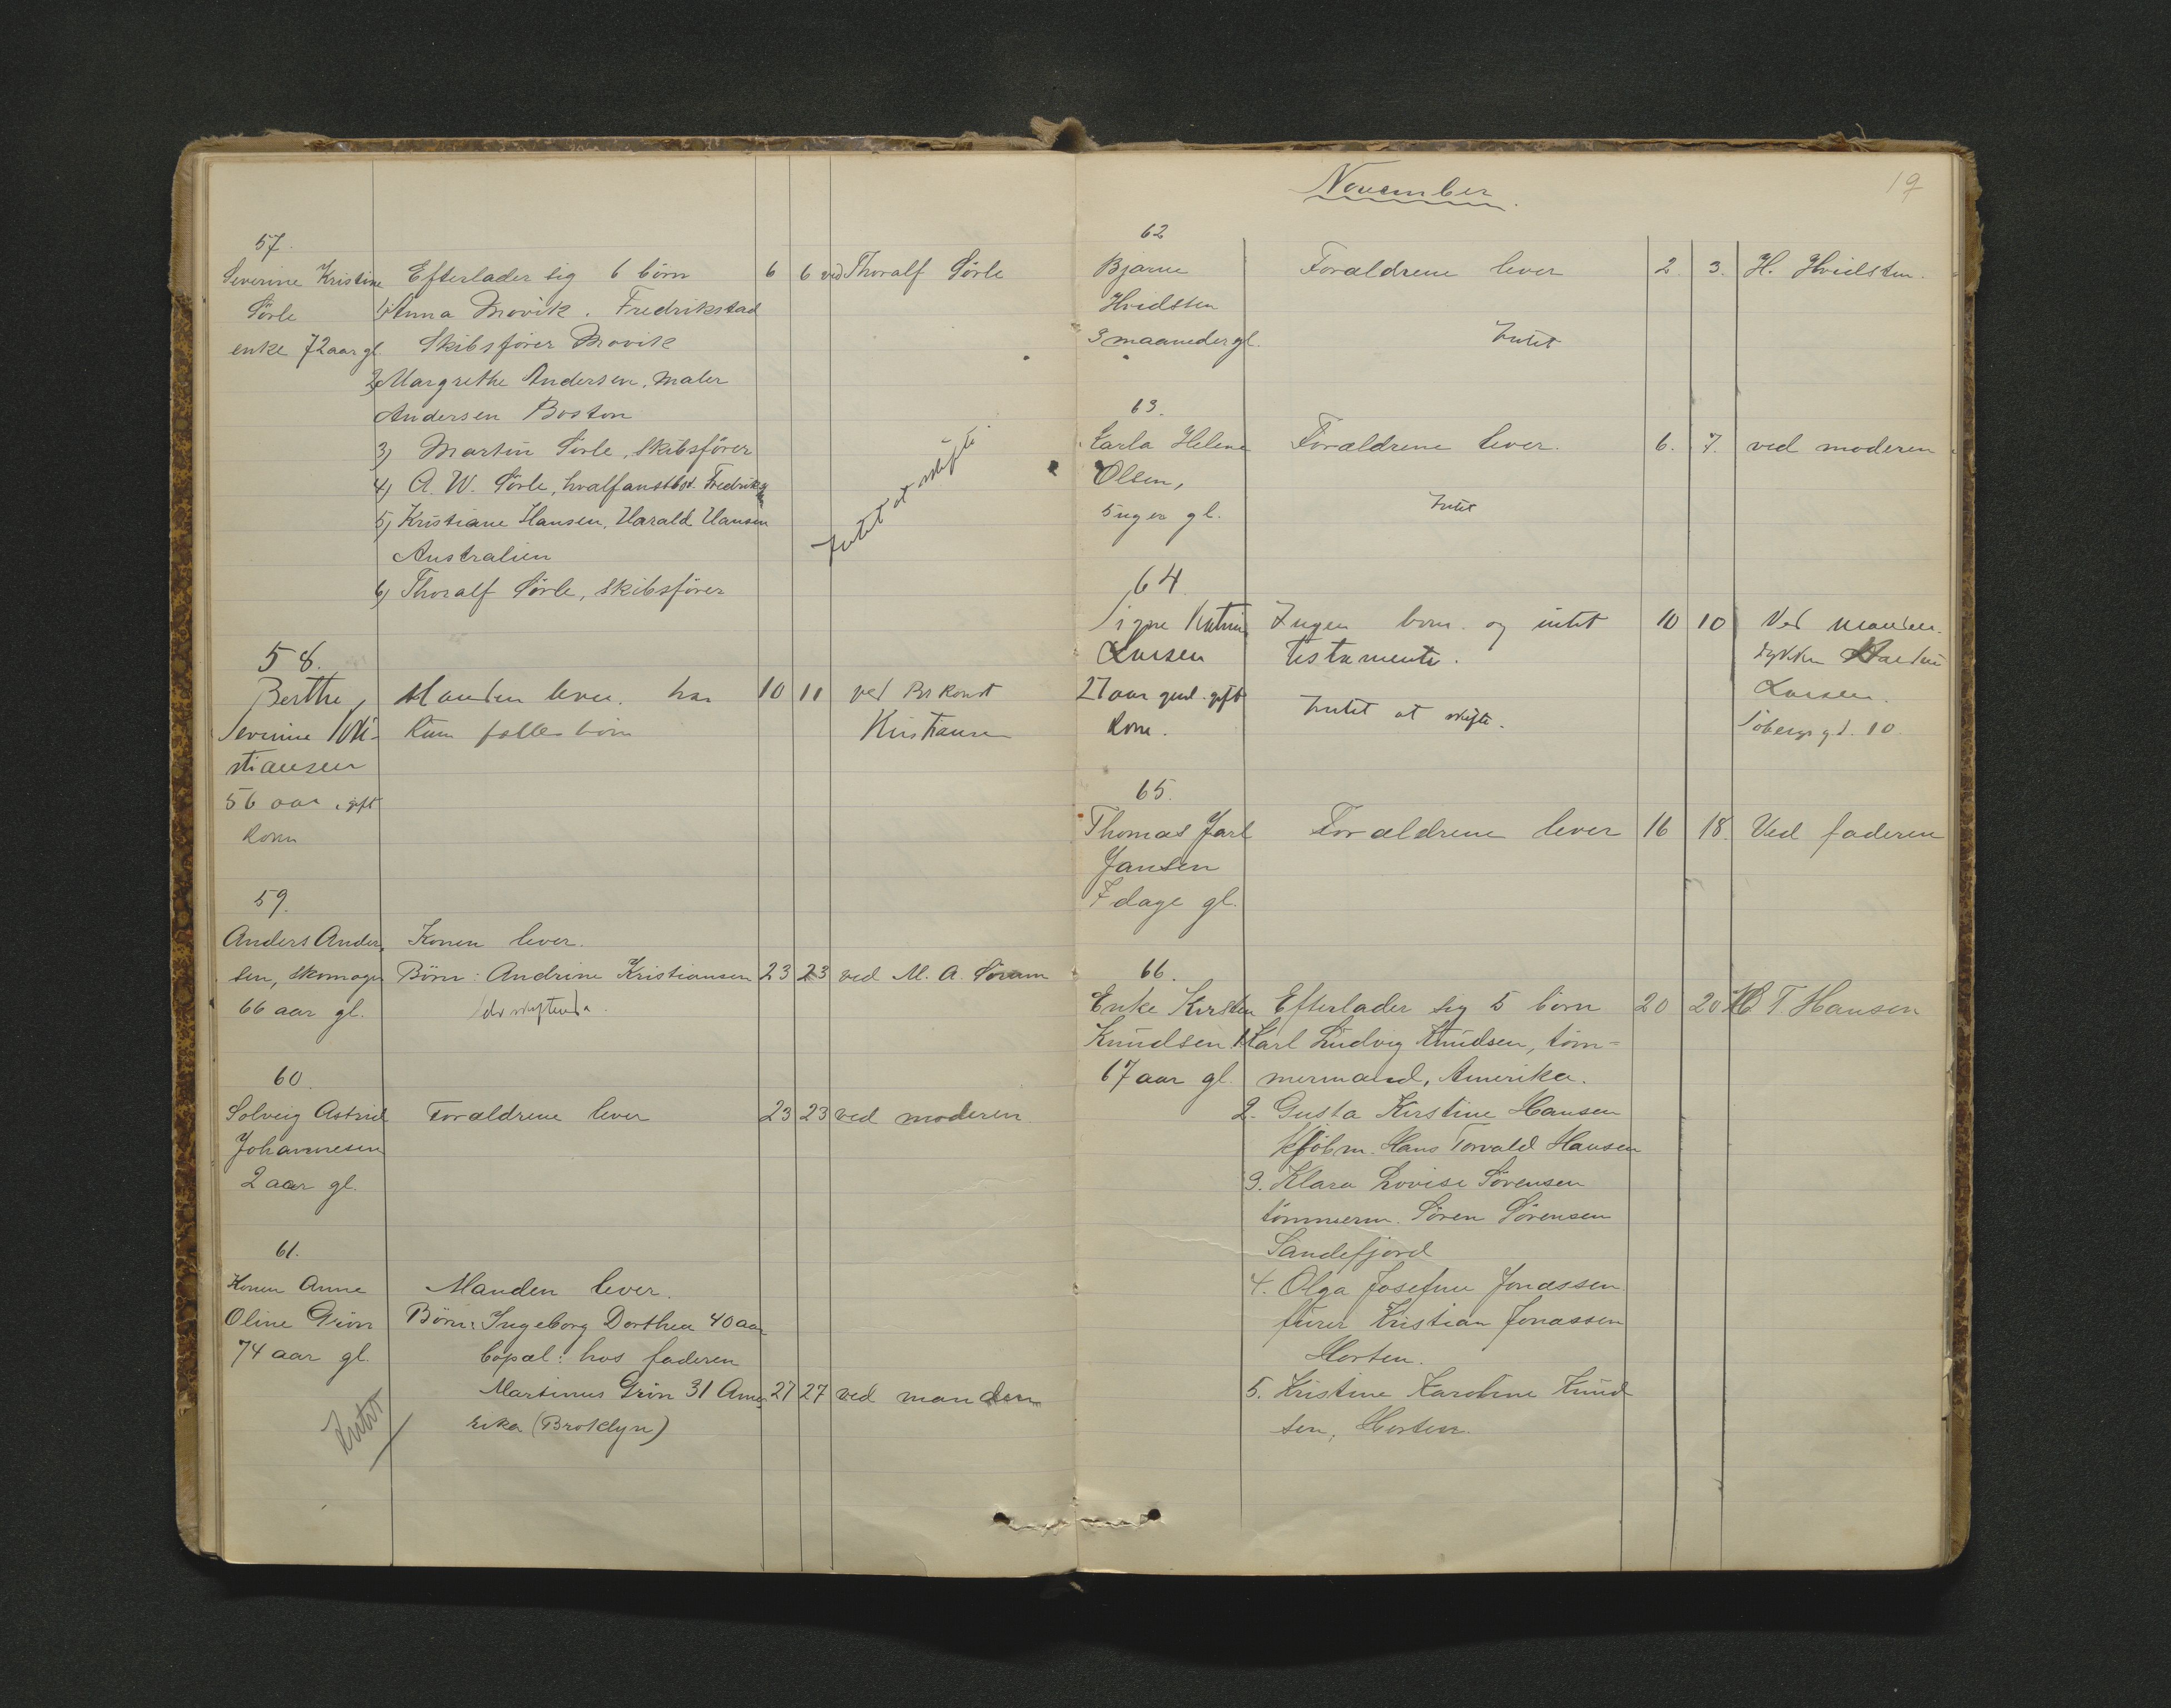 57.
Severine Kristine Efterlader sig 6 börn 6 6 ved Thoralf Sörle
Sörle 1) Anna Movik. Fredrikstad
enke 72 aar gl. Skibsförer Movik
2) Margrethe Andersen, maler
Andersen Boston
3) Martin Sörle, skibsförer
4) A. W. Sörle, hvalfangstbst. Fredriks
5) Kristiane Hansen, Harald Hansen
Australien
6) Thoralf Sörle, skibsförer
Intet at skifte.
58.
Berthe Manden lever. har 10 11 ved
Severine Kri- kun felles börn Kristiansen
stiansen
56 aar, gift
kone
59.
Anders Ander- Konen lever.
sen, skomager Börn: Andrine Kristiansen 23 23 ved M. A. Söram
66 aar gl.
60.
Solveig Astrid Forældrene lever 23 23 ved moderen
Johannesen
2 aar gl.
61.
Konen Anne Manden lever.
Oline Grön Börn: Ingeborg Dorthea 40 aar
74 aar gl. hos faderen
Martinus Grön 31 Ame- 27 27 ved manden
rika (Broklyn)
Intet
November.
19
62
Bjarne Forældrene lever 2. 3. H. Hvidsten.
Hvidsten
3 maaneder gl. Intet
63.
Karla Helene Forældrene lever. 6. 7. ved moderen
Olsen,
5 uger gl. Intet
64
Signe Katrine Ingen born og intet 10 10 Ved manden.
Larsen testamente.
27 aar gml. gift Larsen.
kone. Intet at skifte. Söbergs gd. 10.
65.
Thomas Jarl Forældrene lever 16 18. Ved faderen
Jansen
7 dage gl.
66.
Enke Kirsten Efterlader sig 5 börn 20 20 H T Hansen
Knudsen 1. Karl Ludvig Knudsen, töm-
67 aar gl. mermand, Amerika.
2. Gusta Kirstine Hansen
Kjöbm. Hans Torvald Hansen
3. Klara Lovise Sörensen
tömmerm. Sören Sörensen
Sandefjord
4. Olga Josefine Jonassen
furer Kristian Jonassen
Horten.
5. Kristine Karoline Knud
sen, Horten.